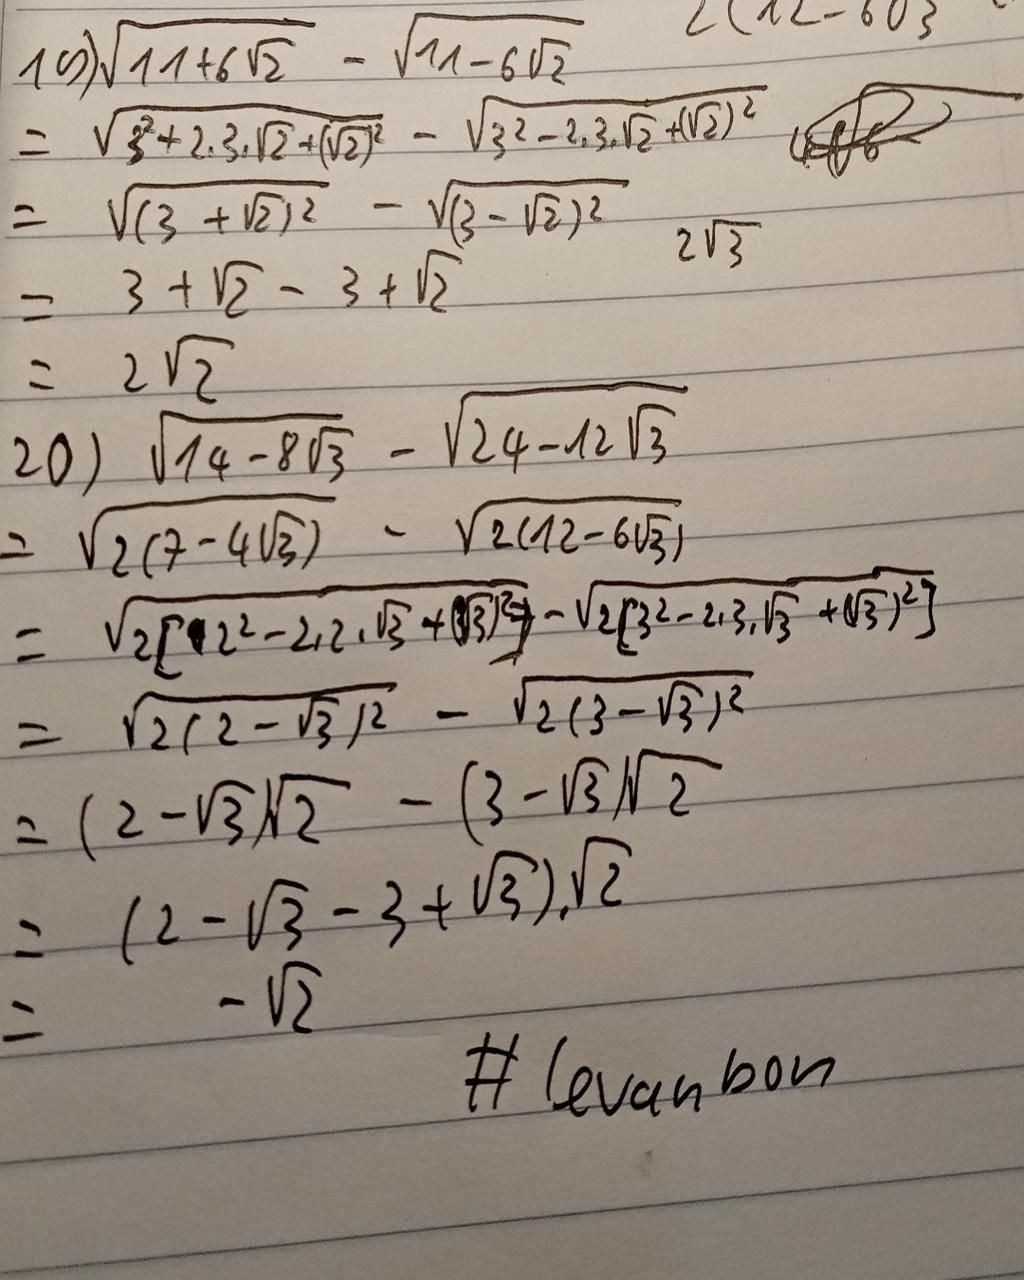 2(12-6√3
19) √(11+6√2) - √(11-6√2)
= √(3²+2.3.√2+(√2)²) - √(3²-2.3.√2+(√2)²)
= √((3+√2)²) - √((3-√2)²)
2√3
= 3+√2-3+√2
= 2√2
20) √(14-8√3) - √(24-12√3)
= √(2(7-4√3)) - √(2(12-6√3))
= √(2[2²-2.2.√3+(√3)²]) - √(2[3²-2.3.√3+(√3)²])
= √(2(2-√3)²) - √(2(3-√3)²)
= (2-√3)√2 - (3-√3)√2
= (2-√3-3+√3).√2
= -√2
# levanbon